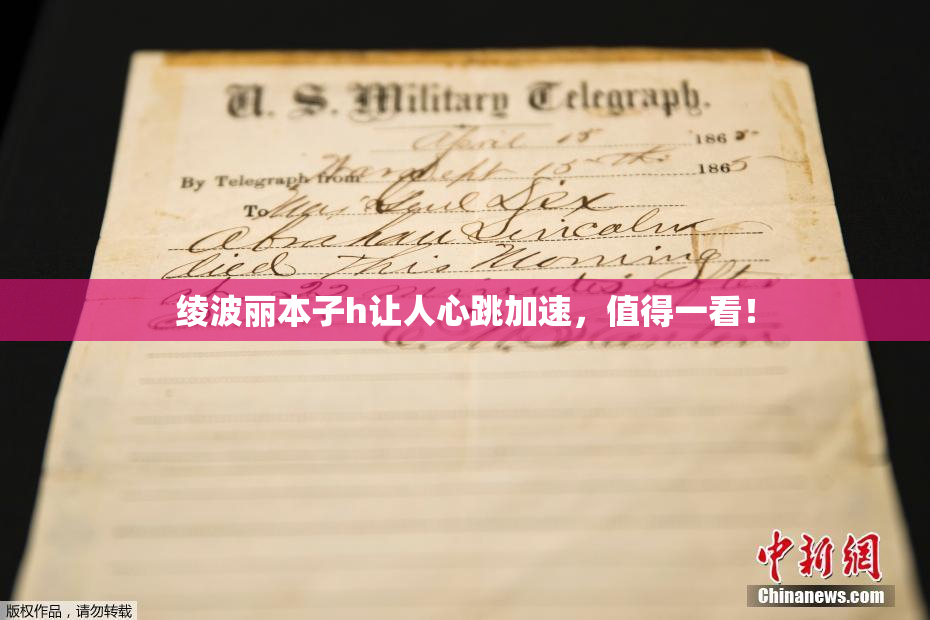 U. S. Military Telegraph.
April 15 1865
By Telegraph from War Dept 15th 1865
To Maj Genl Dix
Abraham Lincoln
died This Morning
at 22 minutes after
绫波丽本子h让人心跳加速，值得一看！
E. M. Stanton
中新网
Chinanews.com
版权作品，请勿转载